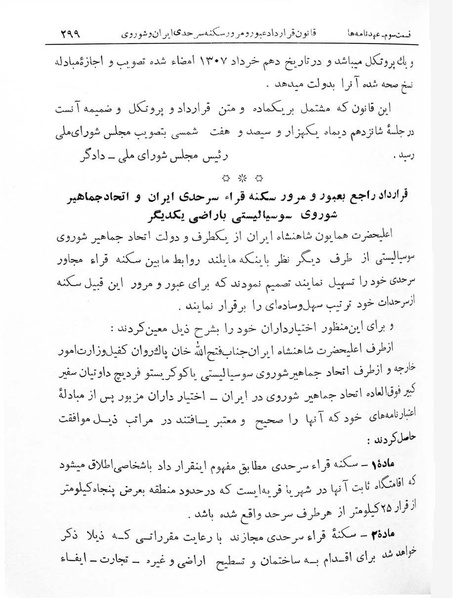 قسمت سوم ـ عهدنامه‌ها قانون قرارداد عبور و مرور سکنه سرحدی ایران و شوروی ۲۹۹
و یك پروتکل میباشد و در تاریخ دهم خرداد ۱۳۰۷ امضاء شده تصویب و اجازهٔ مبادله
نسخ صحه شدهٔ آنرا بدولت میدهد .
این قانون که مشتمل بر یکماده و متن قرارداد و پروتکل و ضمیمه آنست
در جلسهٔ شانزدهم دیماه یکهزار و سیصد و هفت شمسی بتصویب مجلس شورای ملی
رسید . رئیس مجلس شورای ملی ـ دادگر
قرارداد راجع بعبور و مرور سکنه قراء سرحدی ایران و اتحاد جماهیر
شوروی سوسیالیستی باراضی یکدیگر
اعلیحضرت همایون شاهنشاه ایران از یکطرف و دولت اتحاد جماهیر شوروی
سوسیالیستی از طرف دیگر نظر باینکه مایلند روابط مابین سکنه قراء مجاور
سرحدی خود را تسهیل نمایند تصمیم نمودند که برای عبور و مرور این قبیل سکنه
از سرحدات خود ترتیب سهل و ساده‌ای را برقرار نمایند .
و برای این منظور اختیارداران خود را بشرح ذیل معین کردند :
از طرف اعلیحضرت شاهنشاه ایران جناب فتح‌الله خان پاك‌روان کفیل وزارت امور
خارجه و از طرف اتحاد جماهیر شوروی سوسیالیستی یاکوکریستو فردیچ داوتیان سفیر
کبیر فوق‌العاده اتحاد جماهیر شوروی در ایران ـ اختیار داران مزبور پس از مبادلهٔ
اعتبارنامه‌های خود که آنها را صحیح و معتبر یافتند در مراتب ذیل موافقت
حاصل کردند :
مادهٔ ۱ ـ سکنه قراء سرحدی مطابق مفهوم اینقرار داد باشخاصی اطلاق میشود
که اقامتگاه ثابت آنها در شهر یا قریه‌ایست که در حدود منطقه بعرض پنجاه کیلومتر
از قرار ۲۵ کیلومتر از هر طرف سرحد واقع شده باشد .
مادهٔ ۲ ـ سکنهٔ قراء سرحدی مجازند با رعایت مقرراتی که ذیلا ذکر
خواهد شد برای اقدام به ساختمان و تسطیح اراضی و غیره ـ تجارت ـ ایفاء